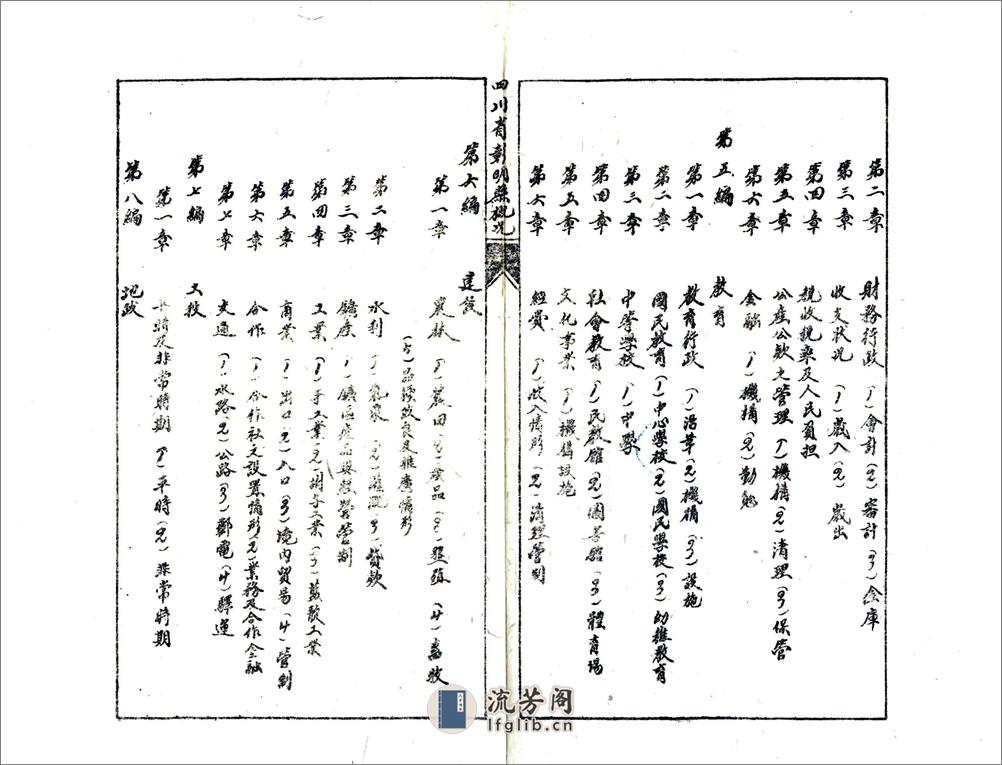 第二章 財務行政 (1)會計(2)審計(3)金庫
第三章 收支狀況 (1)歲入(2)歲出
第四章 稅收稅票及人民負担
第五章 公產公欵之管理 (1)機構(2)清理(3)保管
第六章 金融 (1)機構(2)
第五編 教育
第一章 教育行政 (1)沿革(2)機構(3)設施
第二章 國民教育 (1)中心學校(2)國民學校(3)幼稚教育
第三章 中等學校 (1)中學
第四章 社會教育 (1)民教館(2)圖書館(3)體育場
第五章 文化事業 (1)機構設施
第六章 經費 (1)收入情形(2)清理管制
四川省彰明縣概况
第六編 建設
第一章 農林 (1)農田(2)農品(3)(4)畜牧
(5)品種改良及推廣情形
第二章 水利 (1)(2)灌溉(3)貸欵
第三章 礦産 (1)礦區産品與經營管制
第四章 工業 (1)手工業(2)工業(3)工業
第五章 商業 (1)出口(2)入口(3)境内貿易(4)管制
第六章 合作 (1)合作社之設置情形(2)業務及合作金融
第七章 交通 (1)水路(2)公路(3)郵電(4)驛運
第七編 工役
第一章 平時及非常時期 (1)平時(2)非常時期
第八編 地政
流芳阁
lfglib.cn